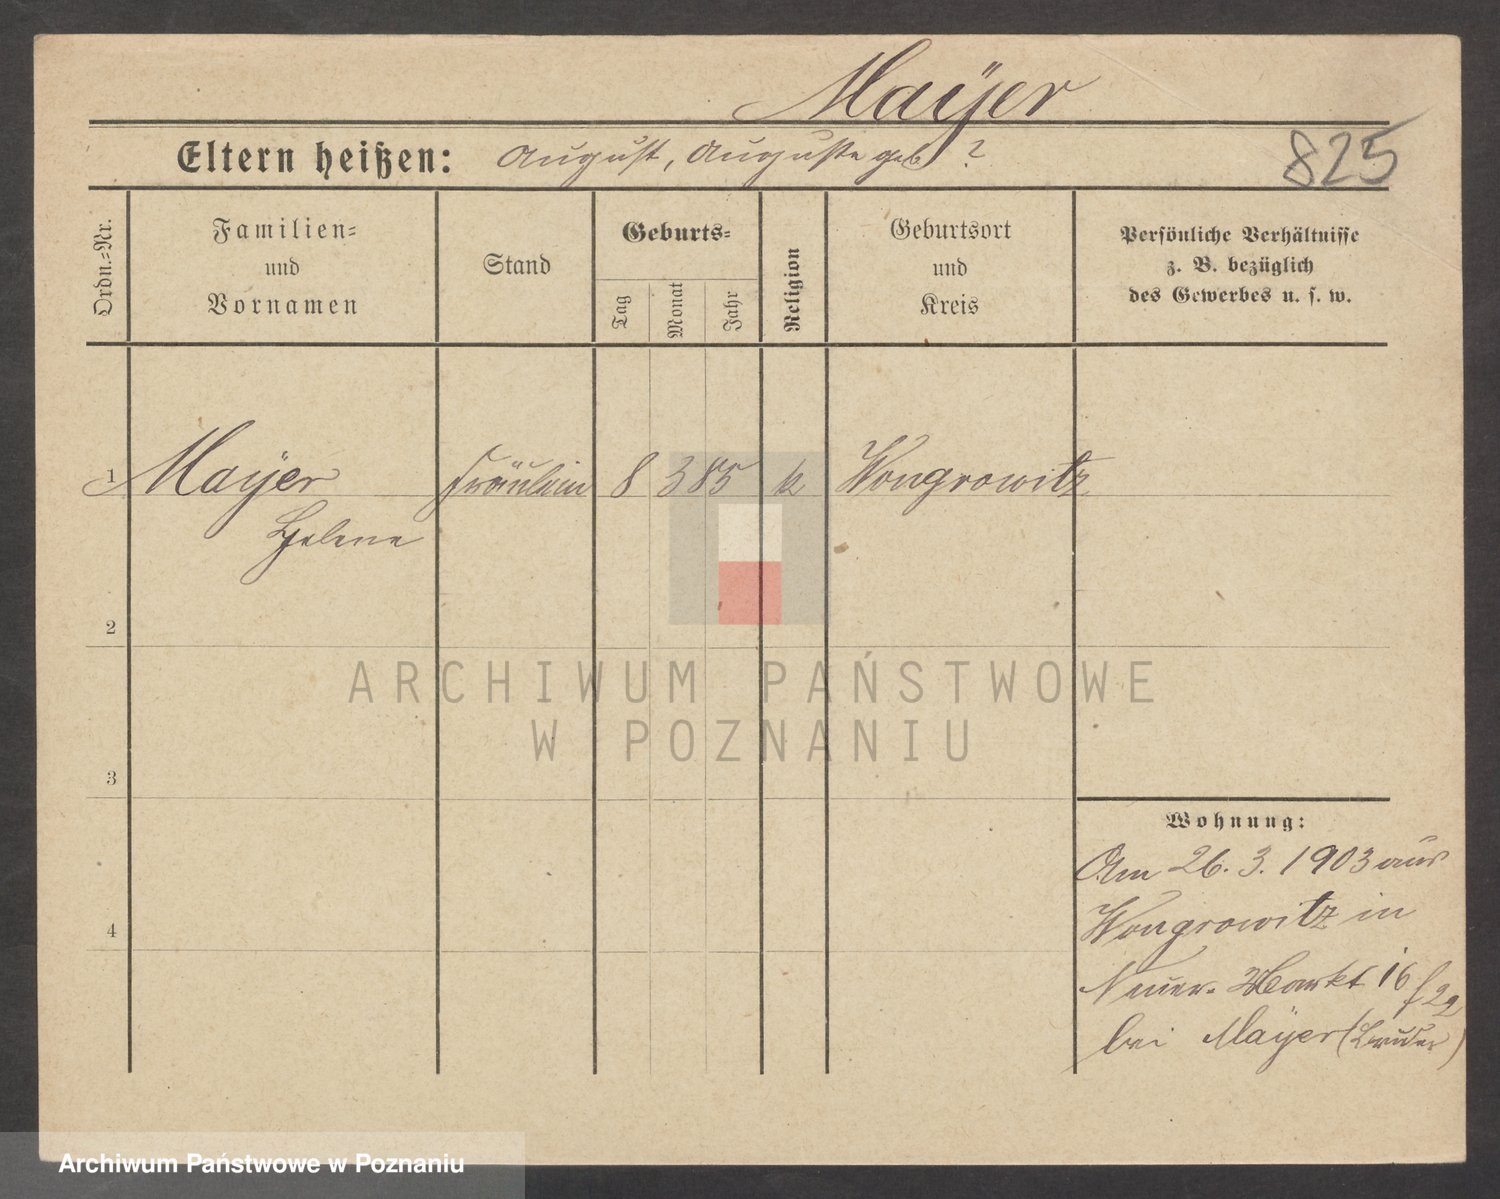 Maÿer
Eltern heißen: August, Auguste geb ?
825
Ordn.-Nr.
Familien-
und
Vornamen
Stand
Geburts-
Tag
Monat
Jahr
Religion
Geburtsort
und
Kreis
Persönliche Verhältnisse
z. B. bezüglich
des Gewerbes u. s. w.
1 Maÿer Fräulein 8 3 85 k Wongrowitz
Helene
2
3
4
Wohnung:
Am 26. 3. 1903 aus
Wongrowitz in
Neuer-Markt 16
bei Maÿer (Bruder)
ARCHIWUM PAŃSTWOWE
W POZNANIU
Archiwum Państwowe w Poznaniu